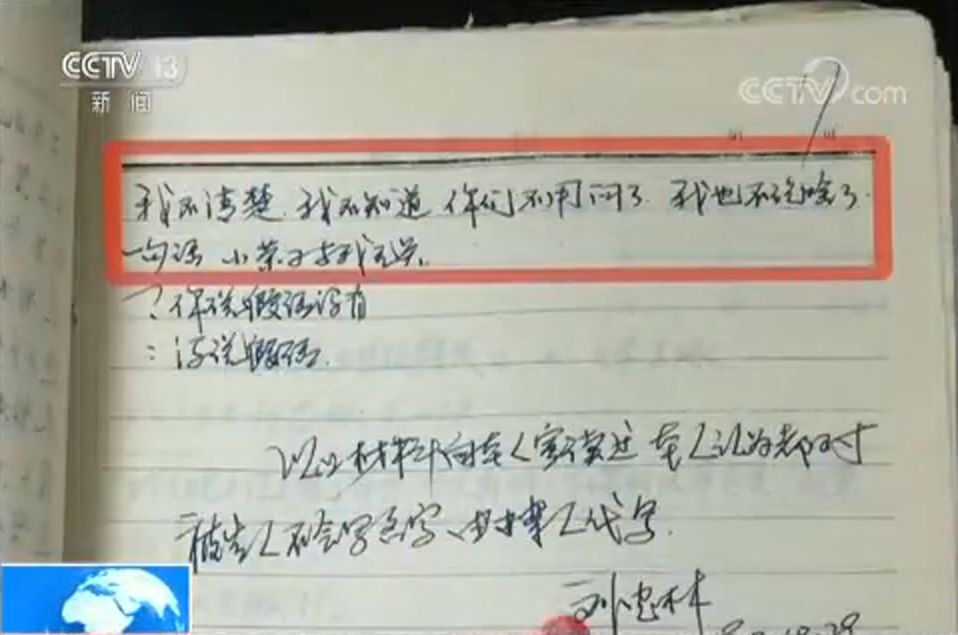 CCTV 13
新闻
CCTV com
我不清楚.我不知道 你们不用问了.我也不说啥了.
一句话 小荣子与我无关.
? 你说假话没有
: 没说假话.
以上材料向本人宣读过 本人认为都对
被告人不会写名字、由办案人代写.
刘忠林